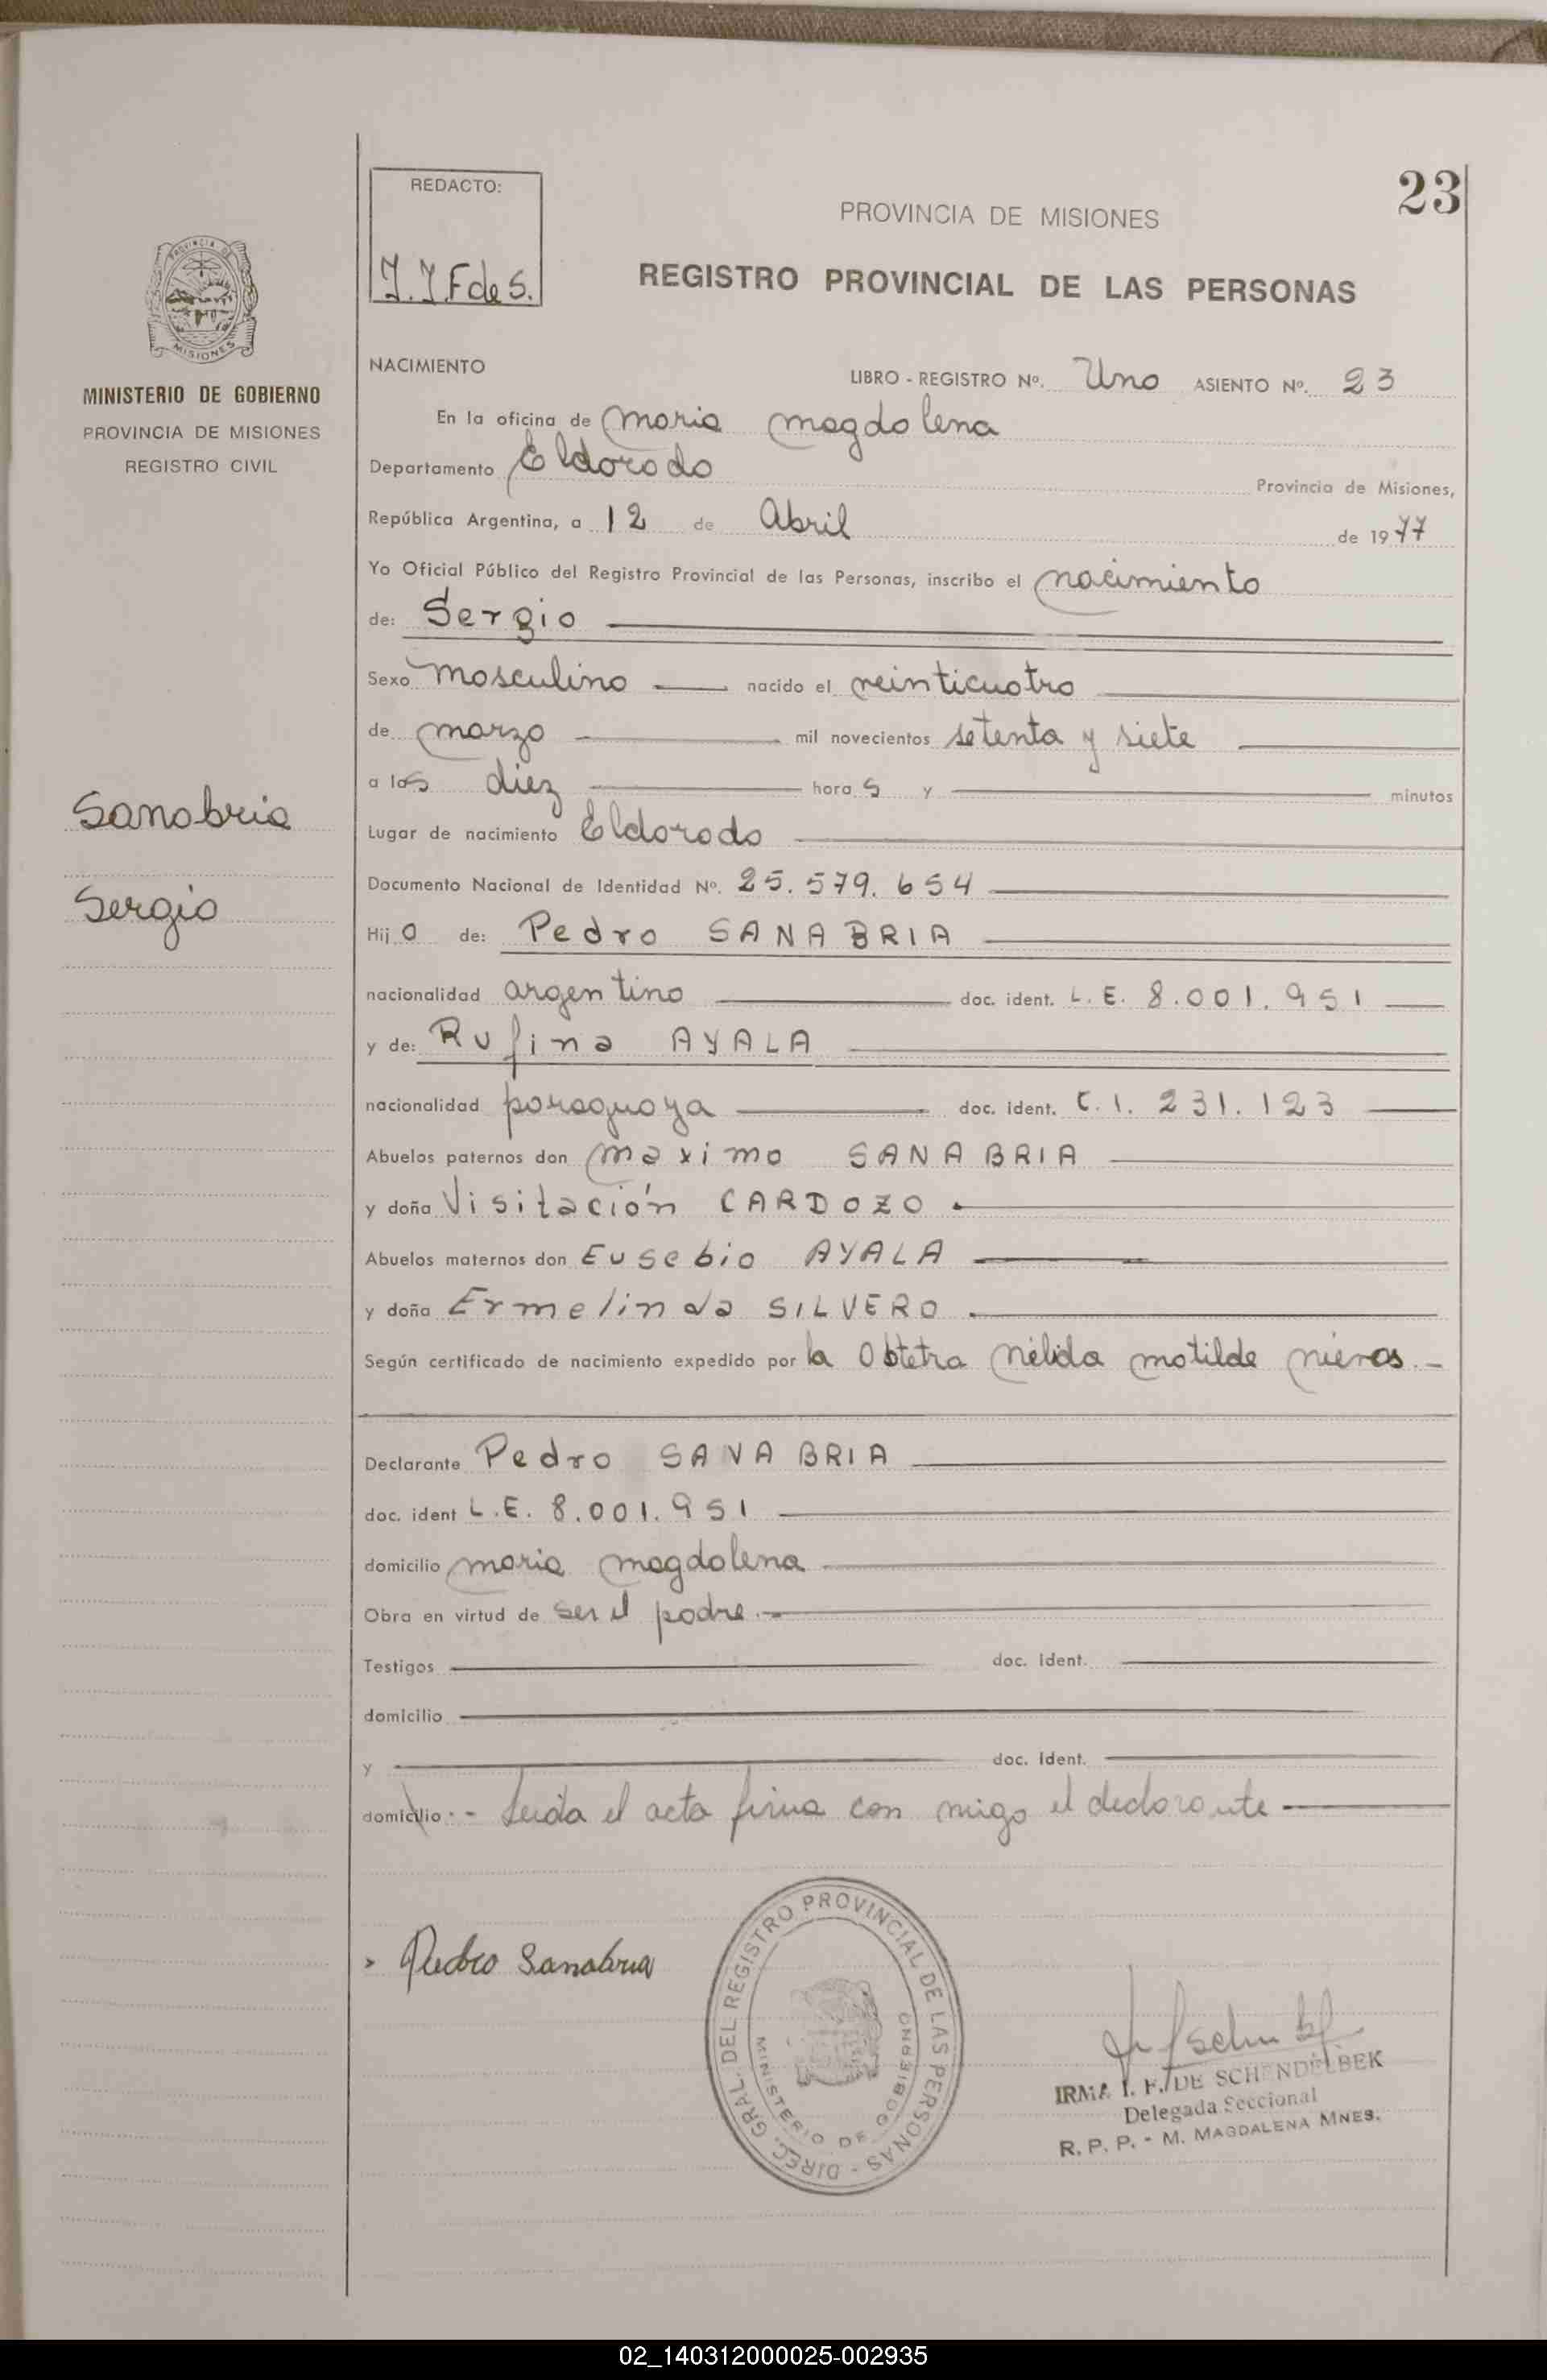 23
REDACTO:
PROVINCIA DE MISIONES
REGISTRO PROVINCIAL DE LAS PERSONAS
F de S.
MINISTERIO DE GOBIERNO
PROVINCIA DE MISIONES
REGISTRO CIVIL
NACIMIENTO
LIBRO - REGISTRO Nº. Uno ASIENTO Nº. 23
En la oficina de Maria Magdalena
Departamento Eldorado Provincia de Misiones,
República Argentina, a 12 de Abril de 1977
Yo Oficial Público del Registro Provincial de las Personas, inscribo el nacimiento
de: Sergio
Sexo masculino nacido el veinticuatro
de marzo mil novecientos setenta y siete
a las diez horas y minutos
Sanabria
Lugar de nacimiento Eldorado
Documento Nacional de Identidad Nº. 25.579.654
Sergio
Hijo de: Pedro SANABRIA
nacionalidad argentino doc. ident. L.E. 8.001.951
y de: Rufina AYALA
nacionalidad paraguaya doc. ident. C.I. 231.123
Abuelos paternos don Maximo SANABRIA
y doña Visitación CARDOZO
Abuelos maternos don Eusebio AYALA
y doña Ermelinda SILVERO
Según certificado de nacimiento expedido por la Obtetra Nélida Matilde
Declarante Pedro SANABRIA
doc. ident L.E. 8.001.951
domicilio Maria Magdalena
Obra en virtud de ser el padre.-
Testigos doc. ident.
domicilio
y doc. ident.
domicilio :- Leida el acta firma con migo el declarante
Pedro Sanabria
DIREC. GRAL. DEL REGISTRO PROVINCIAL DE LAS PERSONAS -
MINISTERIO DE GOBIERNO
IRMA I. F. DE SCHENDELBEK
Delegada Seccional
R. P. P. - M. MAGDALENA MNES.
02_140312000025-002935